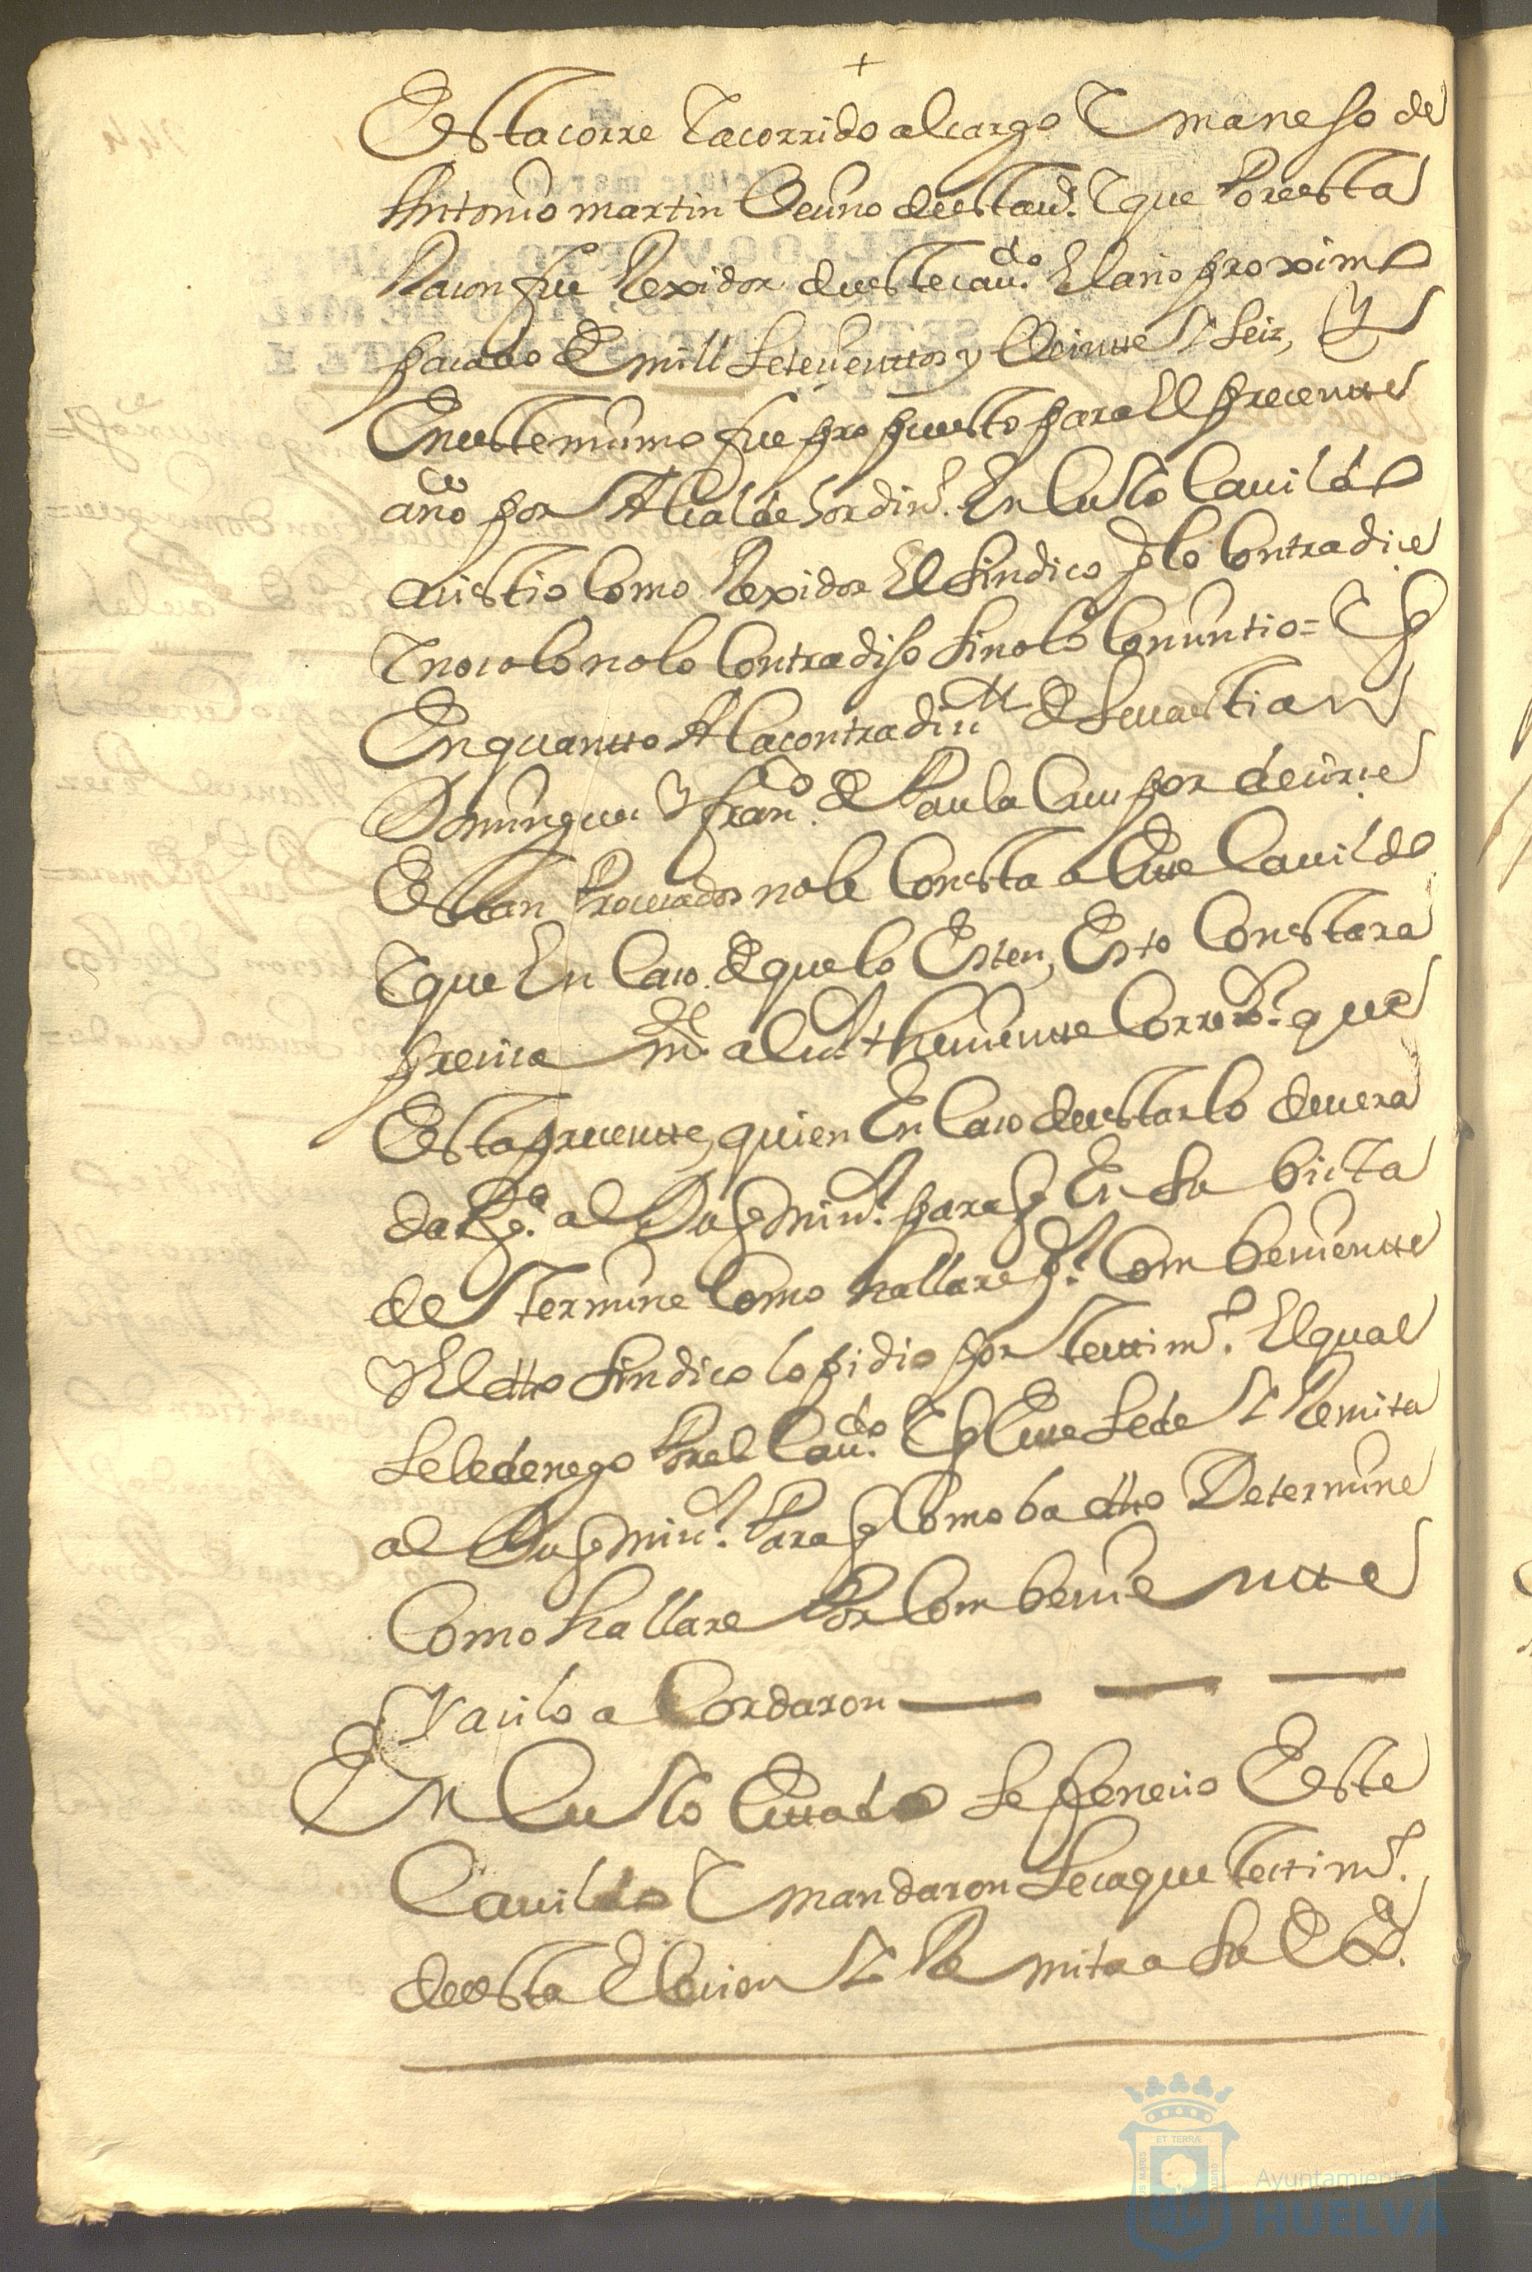 +
Esta corre Y a corrido al cargo Y maneso de
Antonio martin Vecino de esta uª. Y que Por esta
Racon fue Rexidor de este cauᵈᵒ. El año proximo
pacado de mill Setecienttos y Veintte Y Seiz, Y
En este mismo fue propuesto para El precentte
año por Alcalde hordinº. En Cuio Cauildo
acistio Como Rexidor El Sindico q lo Contradice
Y no colo no lo Contradiso Sino lo Concintio = Y q
En quantto A la contradicⁿ de Seuastian
Domingues Y franᶜᵒ. de Paula Cruz por decirce
Estan Procecados no le Consta a Este Cauildo
Y que En Caso de que lo Esten, Esto Constara
precica mᵗᵉ al sʳ thenientte Correxᵒʳ. que
Esta precentte, quien En Caso de estarlo deuera
dar qᵗᵃ al Duq mi sʳ. para q En Su bista
de Termine Como hallare pʳ. Combenientte
Y El dho Sindico lo pidio por testtimᵒ. El qual
Se le denego Por el Cauᵈᵒ. Y q Este Se de Y Remita
al Duq mi sʳ. Para q Como ba dho Determine
Como hallare Por Combenientte
Y aci lo a Cordaron
En Cuio Estado Se fenecio Este
Cauildo Y mandaron Se caque testtimᵒ.
de esta Eleccion Y Re mita a Su Exᵃ.
Ayuntamiento de
HUELVA